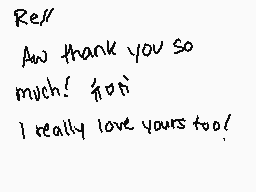 Rell
Aw thank you so
much! ñoñ
I really love yours too!